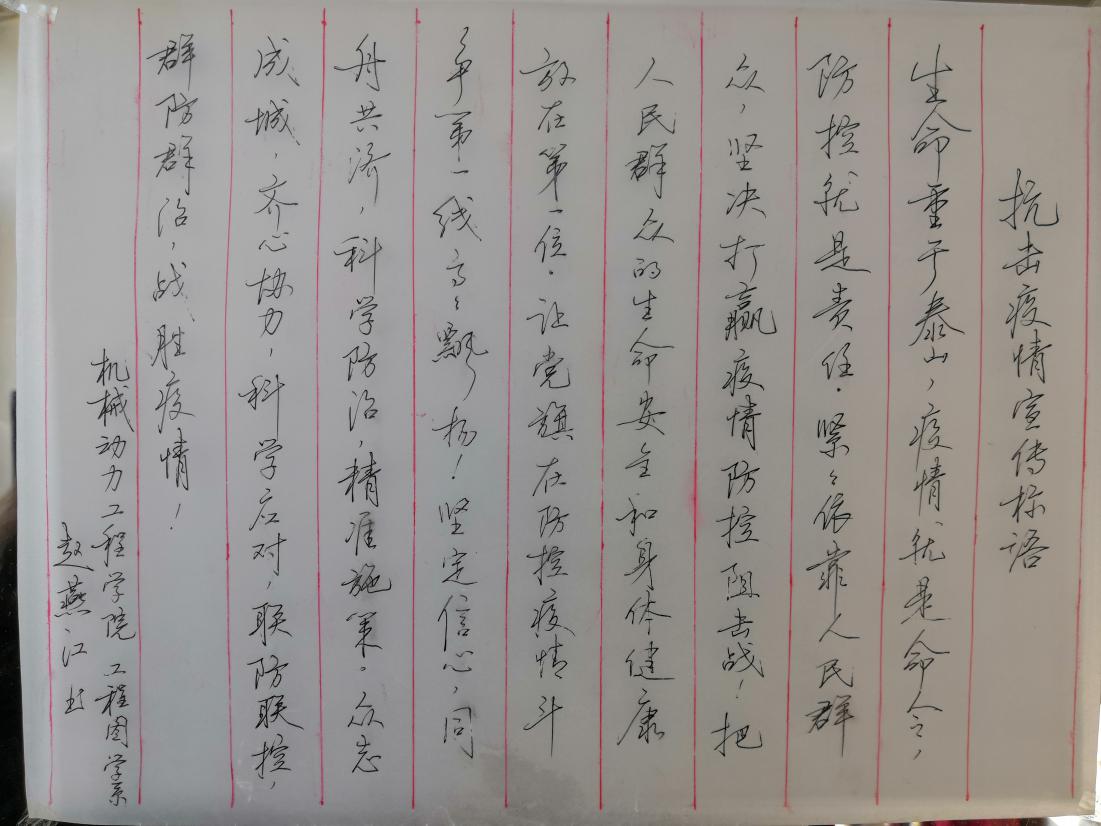 抗击疫情宣传标语
生命重于泰山，疫情就是命令，
防控就是责任．紧〻依靠人民群
众，坚决打赢疫情防控阻击战！把
人民群众的生命安全和身体健康
放在第一位．让党旗在防控疫情斗
争第一线高〻飘扬！坚定信心，同
舟共济，科学防治，精准施策．众志
成城，齐心协力，科学应对，联防联控，
群防群治，战胜疫情！
机械动力工程学院 工程图学系
赵燕江 书